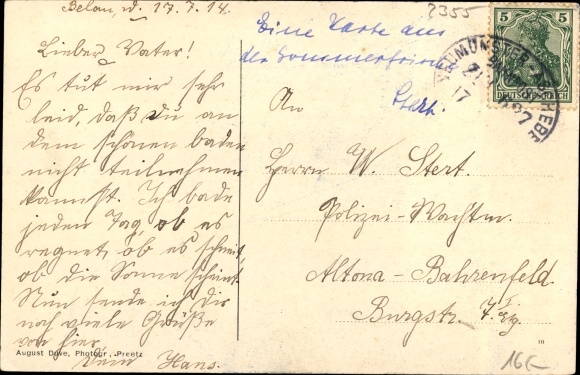 Belau, d. 17.7.14.
Lieber Vater!
Es tut mir sehr
leid, daß du an
dem schönen baden
nicht teilnehmen
kannst. Ich bade
jeden Tag, ob es
regnet, ob es schneit,
ob die Sonne scheint.
Nun sende ich dir
noch viele Grüße
von hier.
Dein Hans.
August Dove, Photogr., Preetz
Eine Karte aus
der Sommerfrische
Stert.
2355
5
5
DEUTSCHES REICH
NEUMÜNSTER
17
An
Herrn W. Stert.
Polizei-Wachtm.
Altona-Bahrenfeld.
Burgstr. 7. I
10
16.-